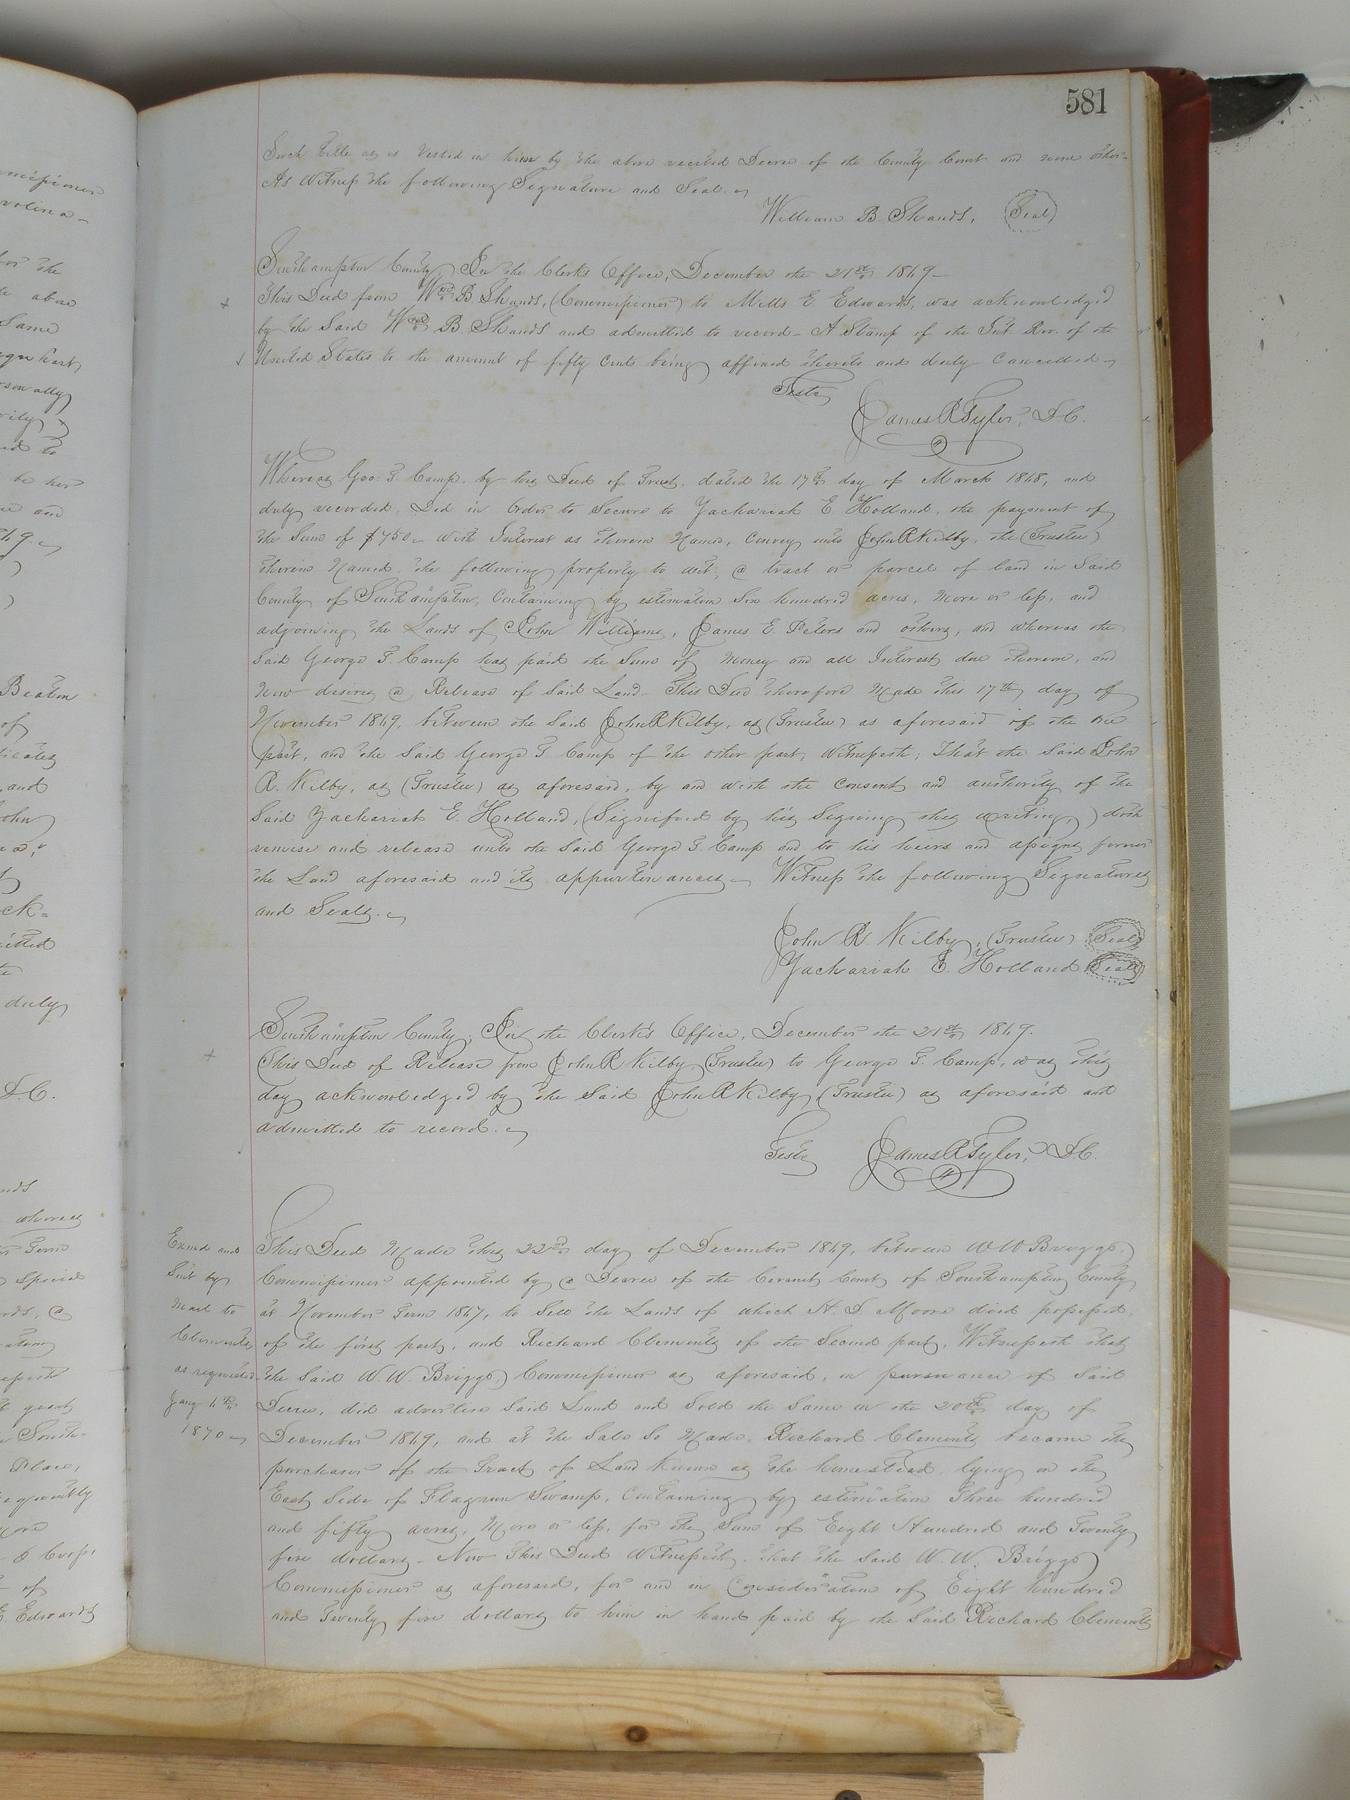 581
Such title as is vested in him by the above recited Decree of the County Court and none other =
As Witness the following Signature and Seal.
William B. Shands, (Seal)
Southampton County, In the Clerks Office, December the 21st 1869 -
This Deed from Wm B. Shands, (Commissioner) to Mills E. Edwards, was acknowledged
by the Said Wm B. Shands and admitted to record - A Stamp of the Int. Rev. of the
United States to the amount of fifty Cents being affixed thereto and duly Cancelled -
Teste
James R Tyler, D.C.
Whereas Geo. T. Camp. by his Deed of Trust, dated the 17th day of March 1868, and
duly recorded, Did in Order to Secure to Zachariah E Holland, the payment of
the Sum of $750 - With Interest as therein Named, Convey unto John R Kilby, the (Trustee)
therein Named, the following property to wit, a tract or parcel of land in Said
County of Southampton, Containing by estimation Six hundred acres, More or less, and
adjoining the Lands of John Williams, James E. Peters and others, and whereas the
Said George T. Camp has paid the Sum of Money and all Interest due thereon, and
Now desires a Release of Said Land - This Deed therefore Made this 17th day of
November 1869, between the Said John R Kilby, as (Trustee) as aforesaid of the one
part, and the Said George T Camp of the other part, Witnesseth; That the Said John
R. Kilby, as (Trustee) as aforesaid, by and with the Consent and authority of the
Said Zachariah E. Holland, (Signified by his Signing this writing,) doth
remise and release unto the Said George T. Camp and to his heirs and assigns forever
the Land aforesaid and its appurtenances - Witness the following Signatures
and Seals. -
John R Kilby, (Trustee) (Seal)
Zachariah E. Holland (Seal)
Southampton County, In the Clerk's Office, December the 21st 1869.
This Deed of Release from John R Kilby (Trustee) to George T. Camp, was this
day acknowledged by the Said John R Kilby (Trustee) as aforesaid and
admitted to record. -
Teste James R Tyler, D.C.
Examd and
Sent by
Mail to
Clements
as requested
Jany 4th
1870 -
This Deed Made this 22nd day of December 1869, between W W Briggs,
Commissioner appointed by a Decree of the Circuit Court of Southampton County
at November Term 1867, to Sell the Lands of which N. D Moore died possessed.
of the first part, and Richard Clements of the Second part, Witnesseth that
the Said W. W. Briggs Commissioner as aforesaid, in pursuance of Said
Decree, did advertise Said Land and Sold the Same on the 20th day of
December 1869, and at the Sale So Made, Richard Clements became the
purchaser of the Tract of Land Known as the homestead, lying on the
East Side of Swamp, Containing by estimation Three hundred
and fifty acres, More or less, for the Sum of Eight Hundred and Twenty
five dollars - Now This Deed Witnesseth, that the Said W. W. Briggs
Commissioner as aforesaid, for and in Consideration of Eight hundred
and Twenty five dollars to him in hand paid by the Said Richard Clements